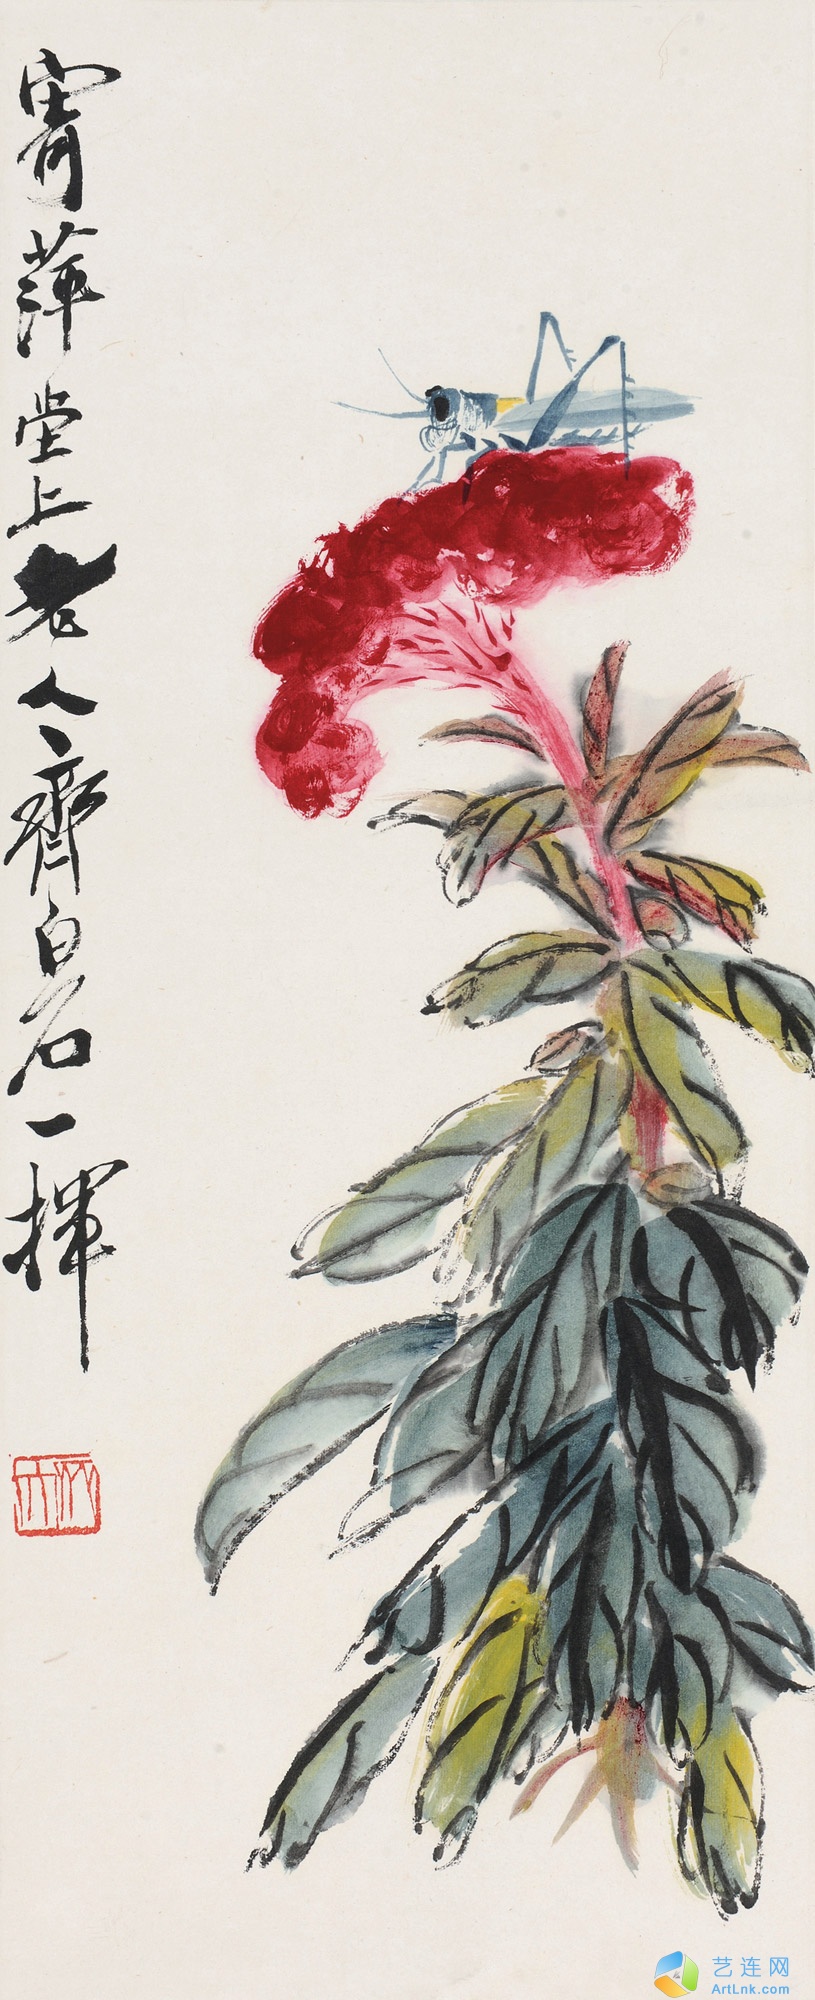 寄萍堂上老人齊白石一揮
木人
艺连网
ArtLnk.com